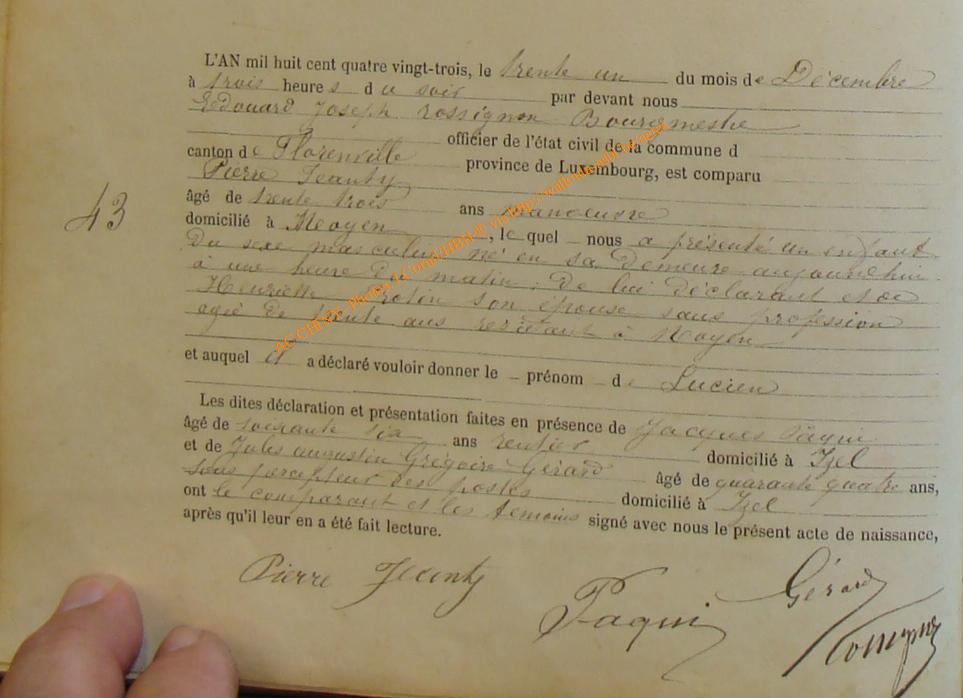 L'AN mil huit cent quatre vingt-trois, le trente un du mois de Décembre
à trois heures du soir par devant nous
Edouard Joseph Rossignon Bourgmestre
officier de l'état civil de la commune d
canton de Florenville province de Luxembourg, est comparu
Pierre Jeanty
âgé de trente trois ans manoeuvre
43
domicilié à Moyen, lequel nous a présenté un enfant
du sexe masculin né en sa demeure aujourd'hui
à une heure du matin; de lui déclarant et de
Henriette son épouse sans profession
agée de trente ans résidant à Moyen
et auquel il a déclaré vouloir donner le prénom de Lucien
Les dites déclaration et présentation faites en présence de Jacques Paqui
âgé de soixante six ans rentier domicilié à Izel
et de Jules augustin Grégoire Gérard âgé de quarante quatre ans,
sous percepteur des postes domicilié à Izel
ont le comparant et les témoins signé avec nous le présent acte de naissance,
après qu'il leur en a été fait lecture.
Pierre Jeanty
Paqui
Gérard